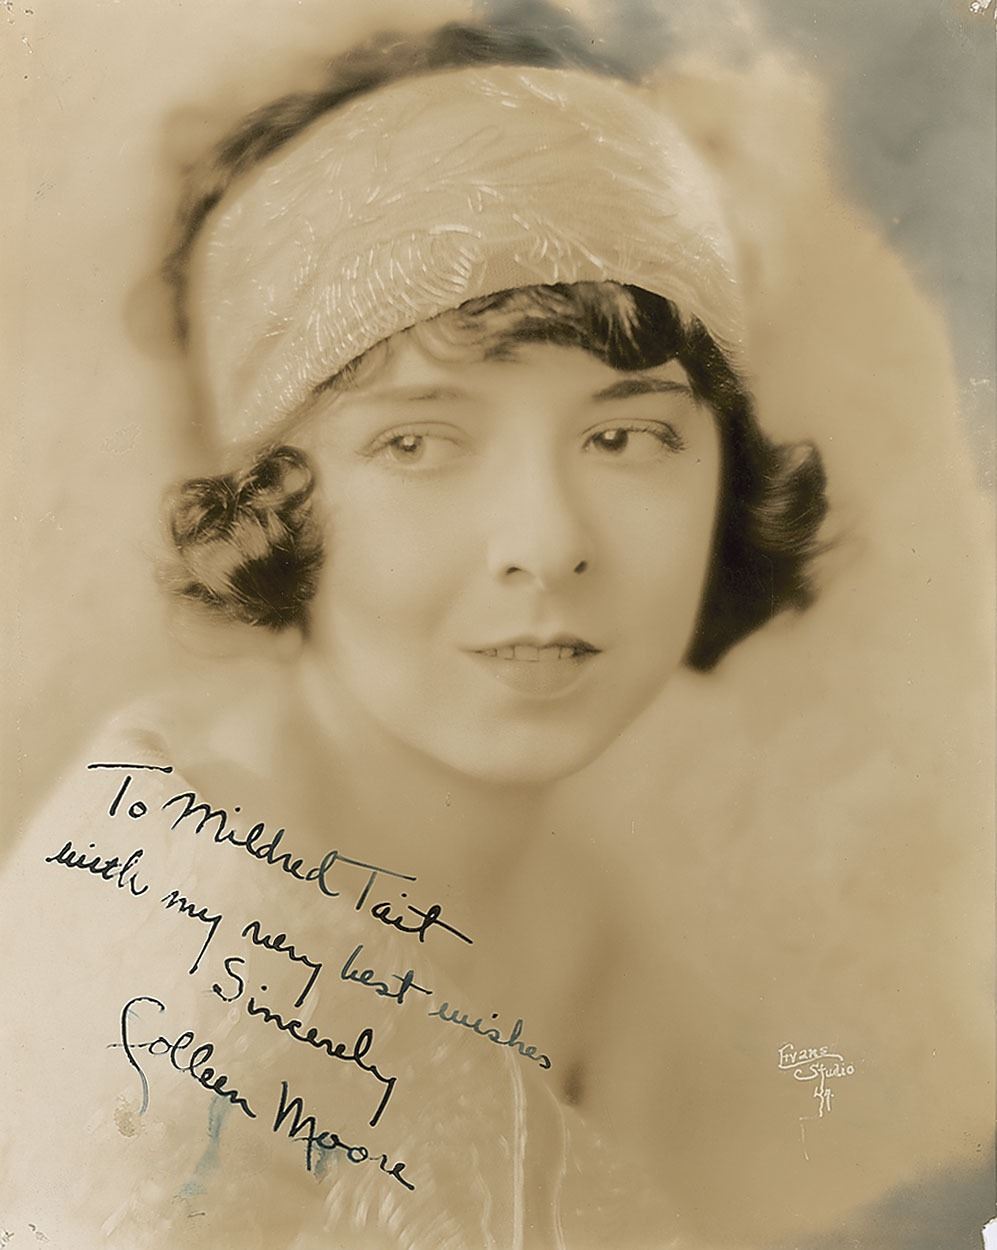 To Mildred Tait
with my very best wishes
Sincerely
Colleen Moore
Evans
Studio
L.A.